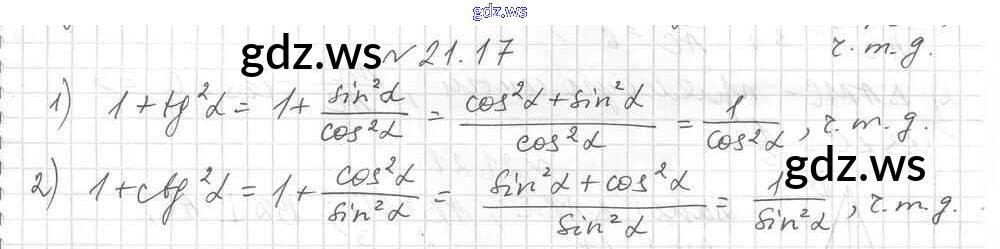 gdz.ws
gdz.ws № 21.17 ч.т.д.
1) 1 + tg²α = 1 + sin²α/cos²α = (cos²α + sin²α)/cos²α = 1/cos²α, ч.т.д.
gdz.ws
2) 1 + ctg²α = 1 + cos²α/sin²α = (sin²α + cos²α)/sin²α = 1/sin²α, ч.т.д.